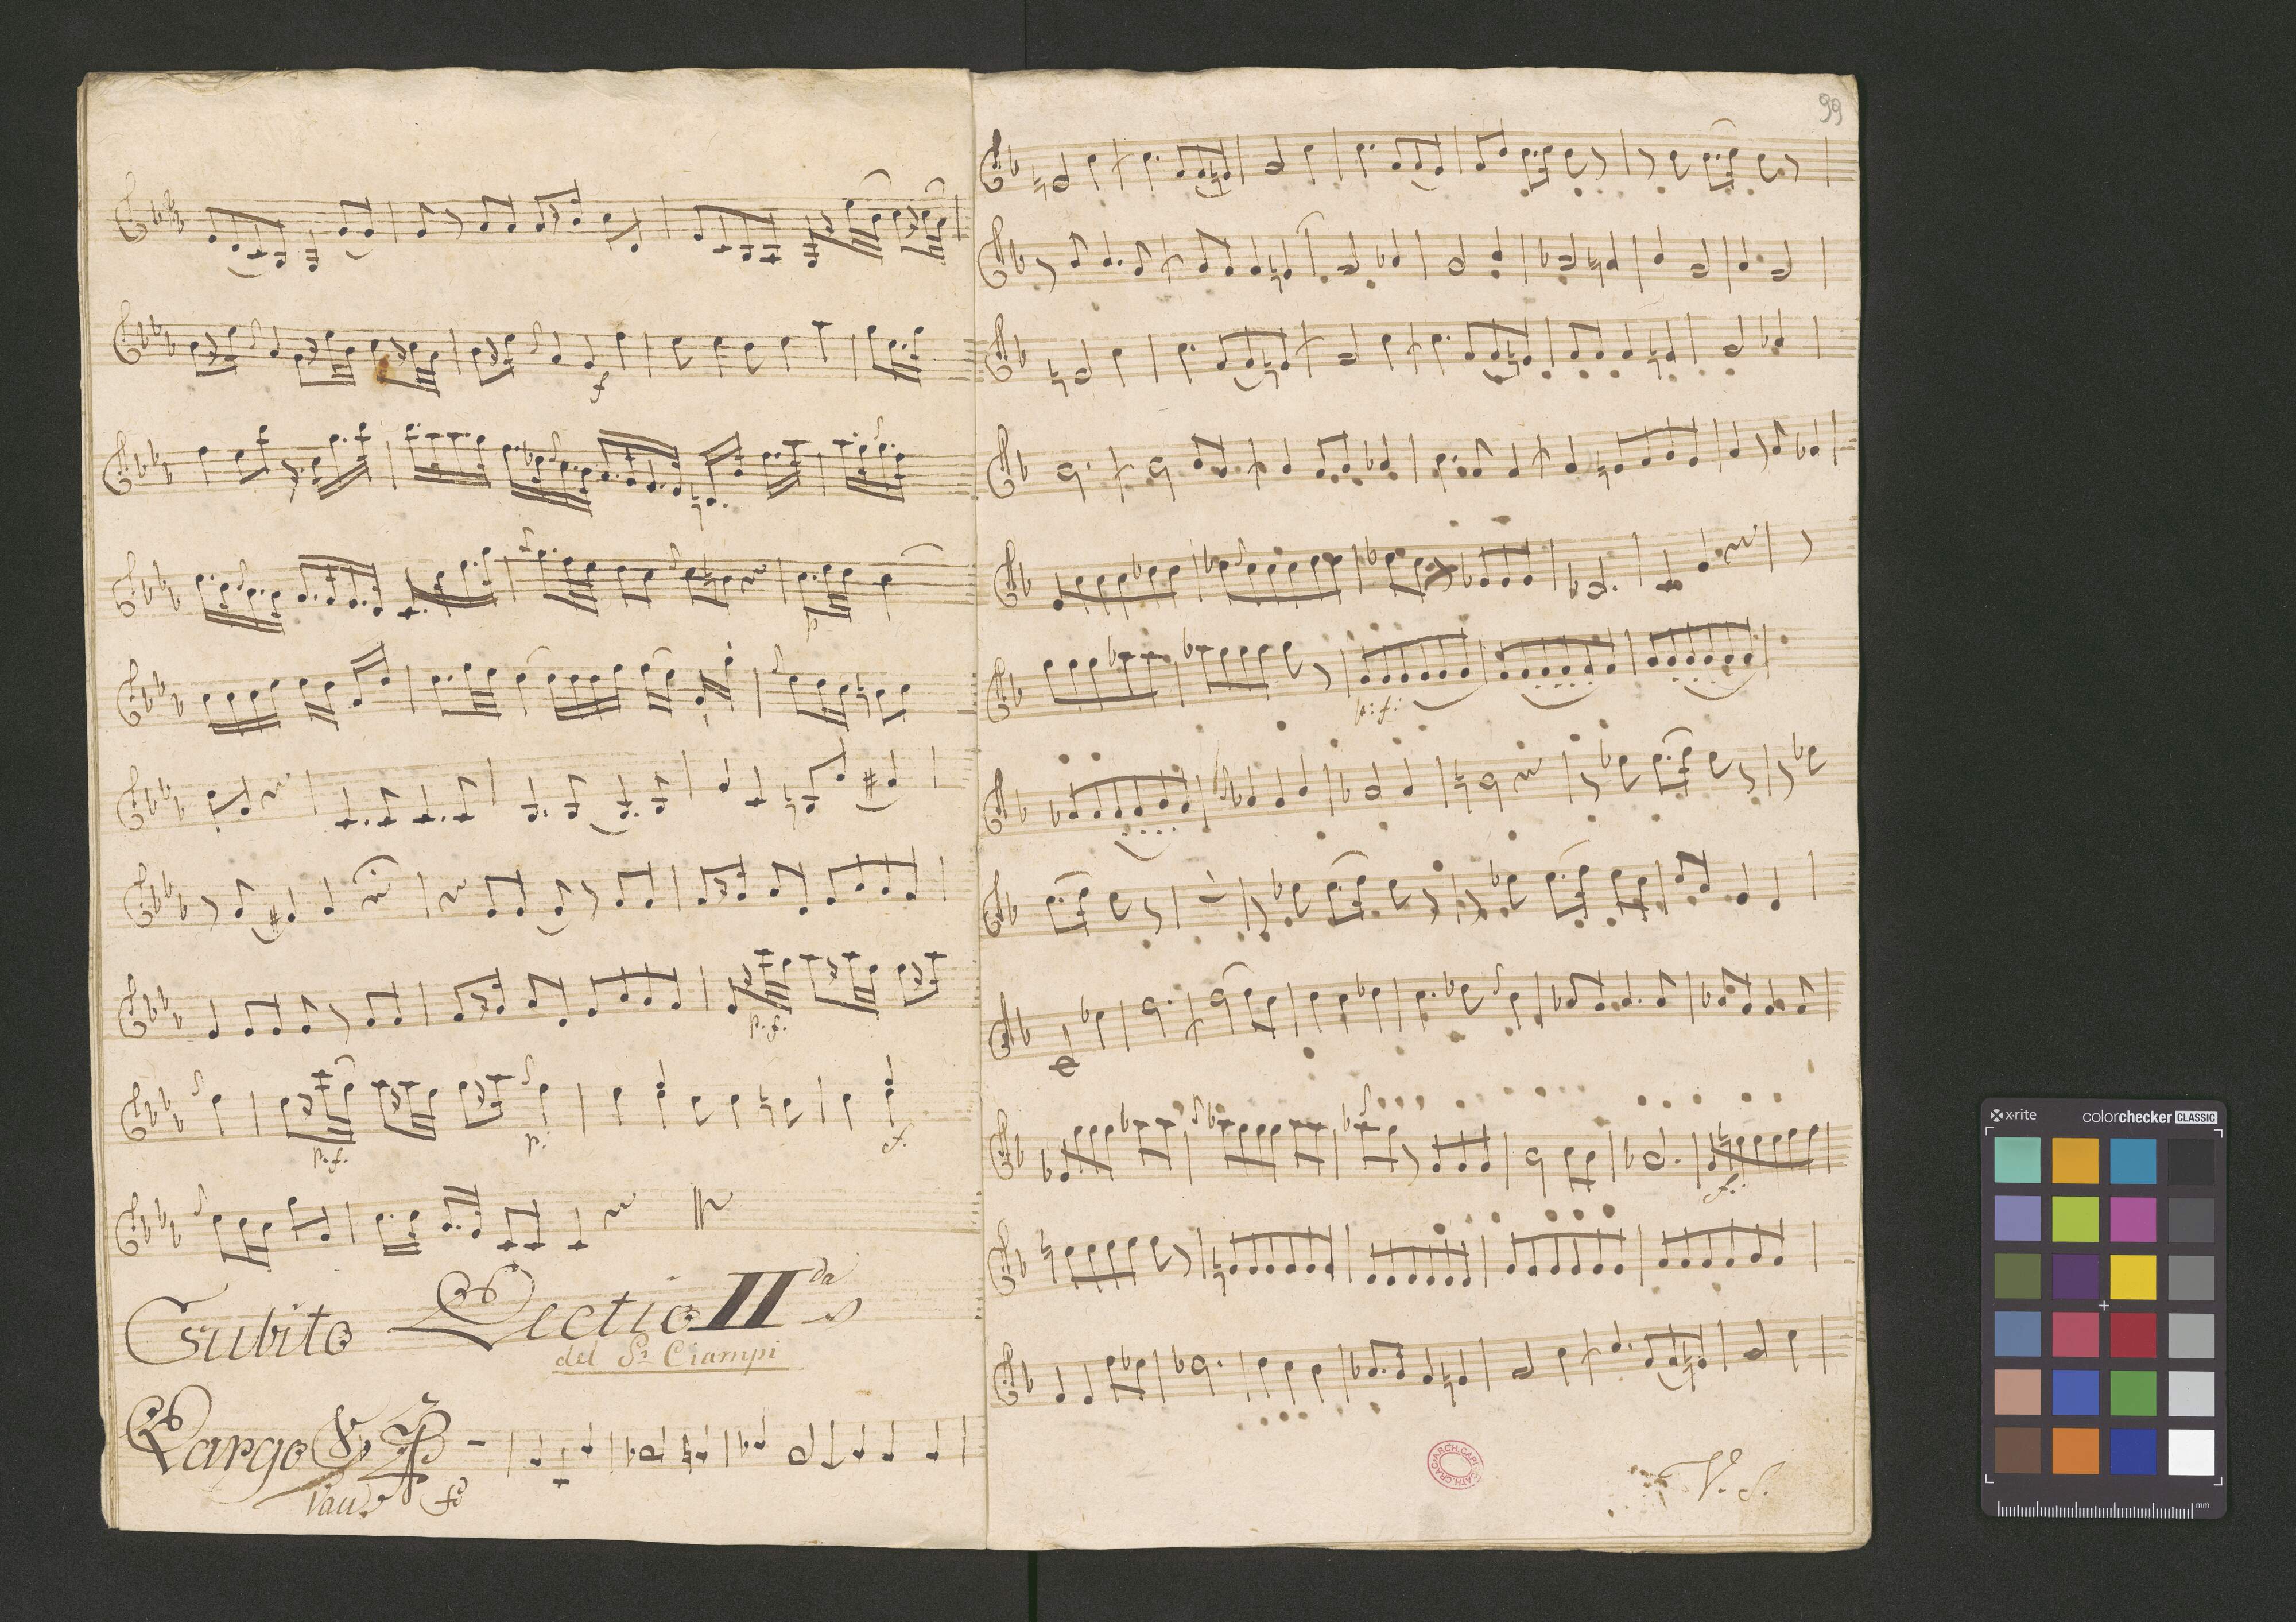 f
p
p.f.
p.f.
p.
f.
Subito Lectio II da
del Sr. Ciampi
Largo
fo
99
p: f:
f.
V. S.
x-rite colorchecker CLASSIC
mm